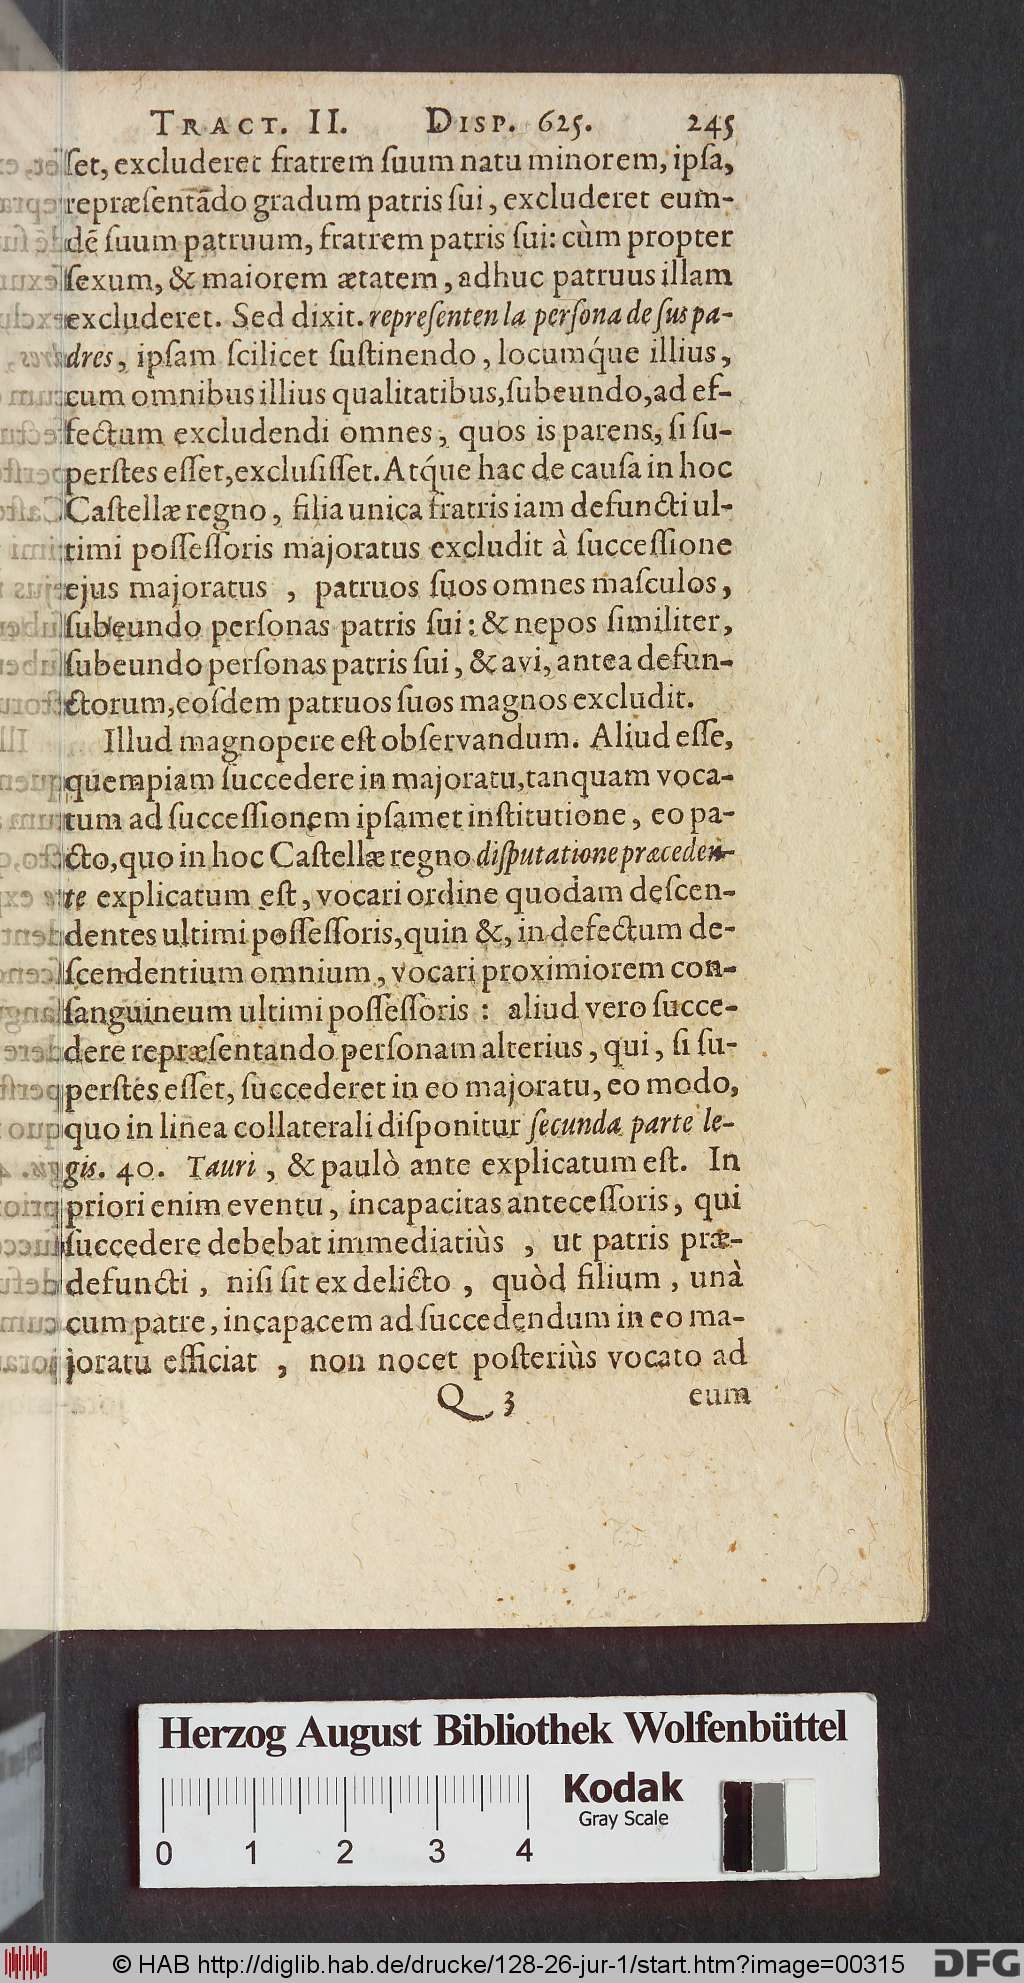 TRACT. II. DISP. 625. 245
ſet, excluderet fratrem ſuum natu minorem, ipſa,
repræſentãdo gradum patris ſui, excluderet eum-
dẽ ſuum patruum, fratrem patris ſui: cùm propter
ſexum, & maiorem ætatem, adhuc patruus illam
excluderet. Sed dixit. repreſenten la perſona de ſus pa-
dres, ipſam ſcilicet ſuſtinendo, locumq́ue illius,
cum omnibus illius qualitatibus, ſubeundo, ad ef-
fectum excludendi omnes, quos is parens, ſi ſu-
perſtes eſſet, excluſiſſet. Atq́ue hac de cauſa in hoc
Caſtellæ regno, filia unica fratris iam defuncti ul-
timi poſſeſſoris majoratus excludit à ſucceſſione
ejus majoratus , patruos ſuos omnes maſculos,
ſubeundo perſonas patris ſui: & nepos ſimiliter,
ſubeundo perſonas patris ſui, & avi, antea defun-
ctorum, eoſdem patruos ſuos magnos excludit.
Illud magnopere eſt obſervandum. Aliud eſſe,
quempiam ſuccedere in majoratu, tanquam voca-
tum ad ſucceſſionem ipſamet inſtitutione, eo pa-
cto, quo in hoc Caſtellæ regno diſputatione præceden-
te explicatum eſt, vocari ordine quodam deſcen-
dentes ultimi poſſeſſoris, quin &, in defectum de-
ſcendentium omnium, vocari proximiorem con-
ſanguineum ultimi poſſeſſoris : aliud vero ſucce-
dere repræſentando perſonam alterius, qui, ſi ſu-
perſtes eſſet, ſuccederet in eo majoratu, eo modo,
quo in linea collaterali diſponitur ſecunda parte le-
gis. 40. Tauri, & paulò ante explicatum eſt. In
priori enim eventu, incapacitas anteceſſoris, qui
ſuccedere debebat immediatiùs , ut patris præ-
defuncti, niſi ſit ex delicto, quòd filium, unà
cum patre, incapacem ad ſuccedendum in eo ma-
joratu efficiat , non nocet poſteriùs vocato ad
Q 3 eum
Herzog August Bibliothek Wolfenbüttel
Kodak
Gray Scale
0 1 2 3 4
© HAB http://diglib.hab.de/drucke/128-26-jur-1/start.htm?image=00315
DFG